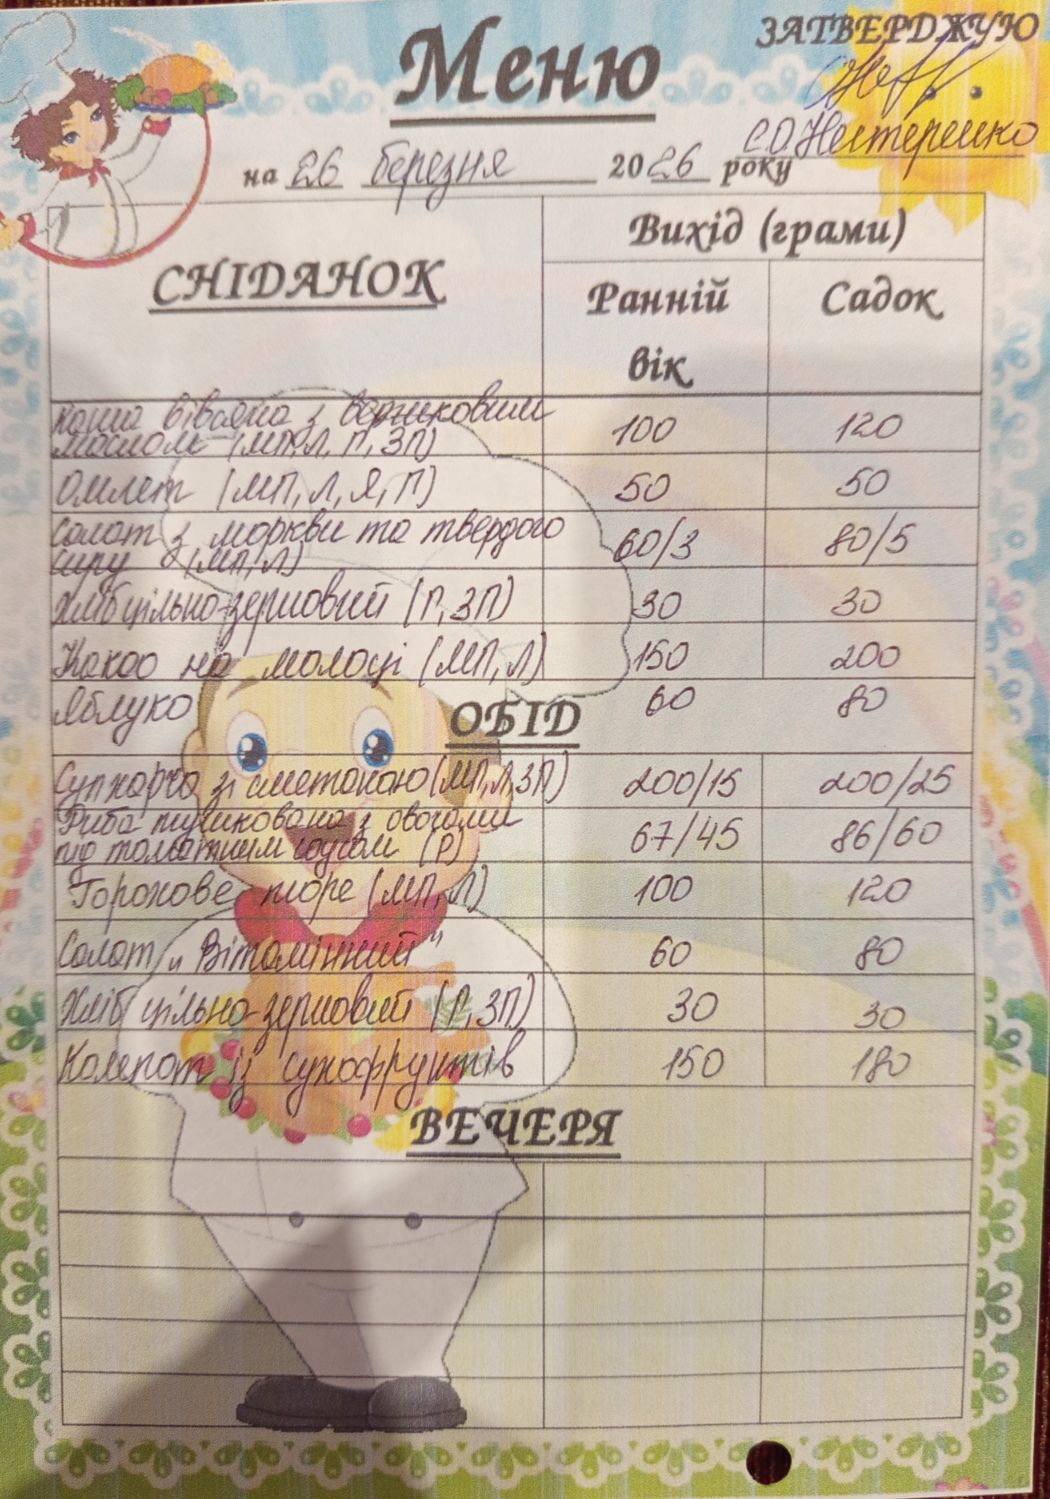 Меню
ЗАТВЕРДЖУЮ
С.О. Нестеренко
на 26 березня 2026 року
СНІДАНОК
Вихід (грами)
Ранній вік
Садок
Каша вівсяна з вершковим
маслом (МП, Л, П, ЗП) 100 120
Омлет (МП, Л, Я, П) 50 50
Салат з моркви та твердого
сиру (МП, Л) 60/3 80/5
Хліб цільно-зерновий (П, ЗП) 30 30
Какао на молоці (МП, Л) 150 200
Яблуко 60 80
ОБІД
Суп харчо зі сметаною (МП, Л, ЗП) 200/15 200/25
Риба тушкована з овочами
під томатним соусом (Р) 67/45 86/60
Горохове пюре (МП, Л) 100 120
Салат „Вітамінний" 60 80
Хліб цільно-зерновий (П, ЗП) 30 30
Компот із сухофруктів 150 180
ВЕЧЕРЯ